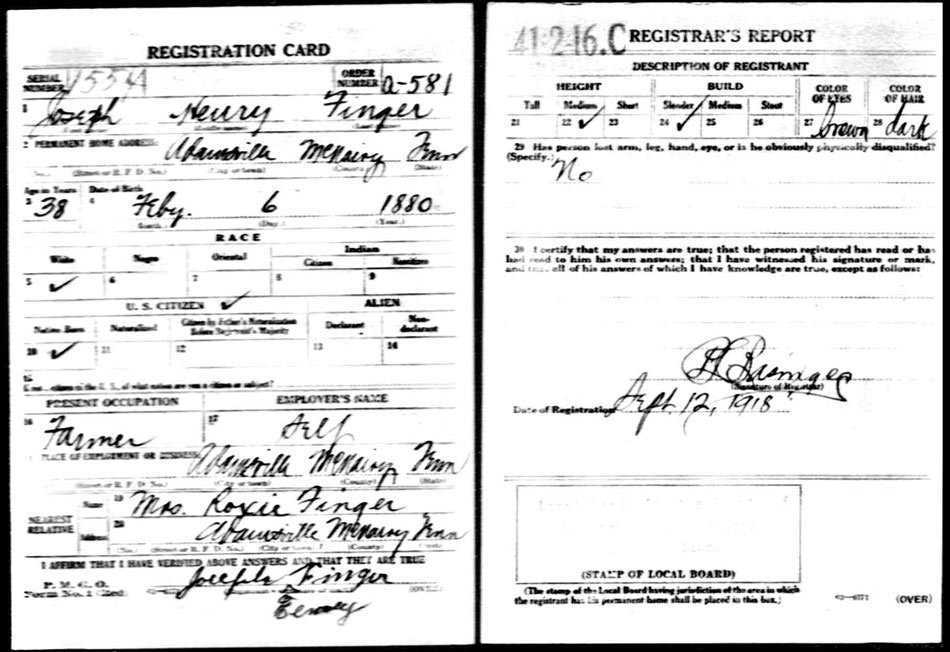 REGISTRATION CARD
SERIAL NUMBER
ORDER NUMBER a-581
1 Joseph Henry Finger
2 PERMANENT HOME ADDRESS:
Adamsville McNairy Tenn
(No.) (Street or R. F. D. No.) (City or town) (County) (State)
Age in Years Date of Birth
3 38 4 Feby. 6 1880
(Month.) (Day.) (Year.)
RACE
White Negro Oriental Indian
Citizen Noncitizen
5 ✓ 6 7 8 9
U. S. CITIZEN ✓ ALIEN
Native Born Naturalized Citizen by Father's Naturalization Before Registrant's Majority Declarant Non-declarant
10 ✓ 11 12 13 14
15
If not a citizen of the U. S., of what nation are you a citizen or subject?
PRESENT OCCUPATION EMPLOYER'S NAME
16 Farmer 17 Self
PLACE OF EMPLOYMENT OR BUSINESS:
Adamsville McNairy Tenn
(Street or R. F. D. No.) (City or town) (County) (State)
NEAREST RELATIVE
Name 19 Mrs. Roxie Finger
Address 20 Adamsville McNairy Tenn
(No.) (Street or R. F. D. No.) (City or town) (County) (State)
I AFFIRM THAT I HAVE VERIFIED ABOVE ANSWERS AND THAT THEY ARE TRUE
P. M. G. O.
Form No. 1 (Red)
Joseph Finger
(OVER)
41-2-16. C REGISTRAR'S REPORT
DESCRIPTION OF REGISTRANT
HEIGHT BUILD COLOR OF EYES COLOR OF HAIR
Tall Medium Short Slender Medium Stout
21 22 ✓ 23 24 ✓ 25 26 27 brown 28 dark
29 Has person lost arm, leg, hand, eye, or is he obviously physically disqualified?
(Specify.) No
30 I certify that my answers are true; that the person registered has read or has
had read to him his own answers; that I have witnessed his signature or mark,
and that all of his answers of which I have knowledge are true, except as follows:
(Signature of Registrar)
Date of Registration Sept. 12, 1918
(STAMP OF LOCAL BOARD)
(The stamp of the Local Board having jurisdiction of the area in which
the registrant has his permanent home shall be placed in this box.)
(OVER)